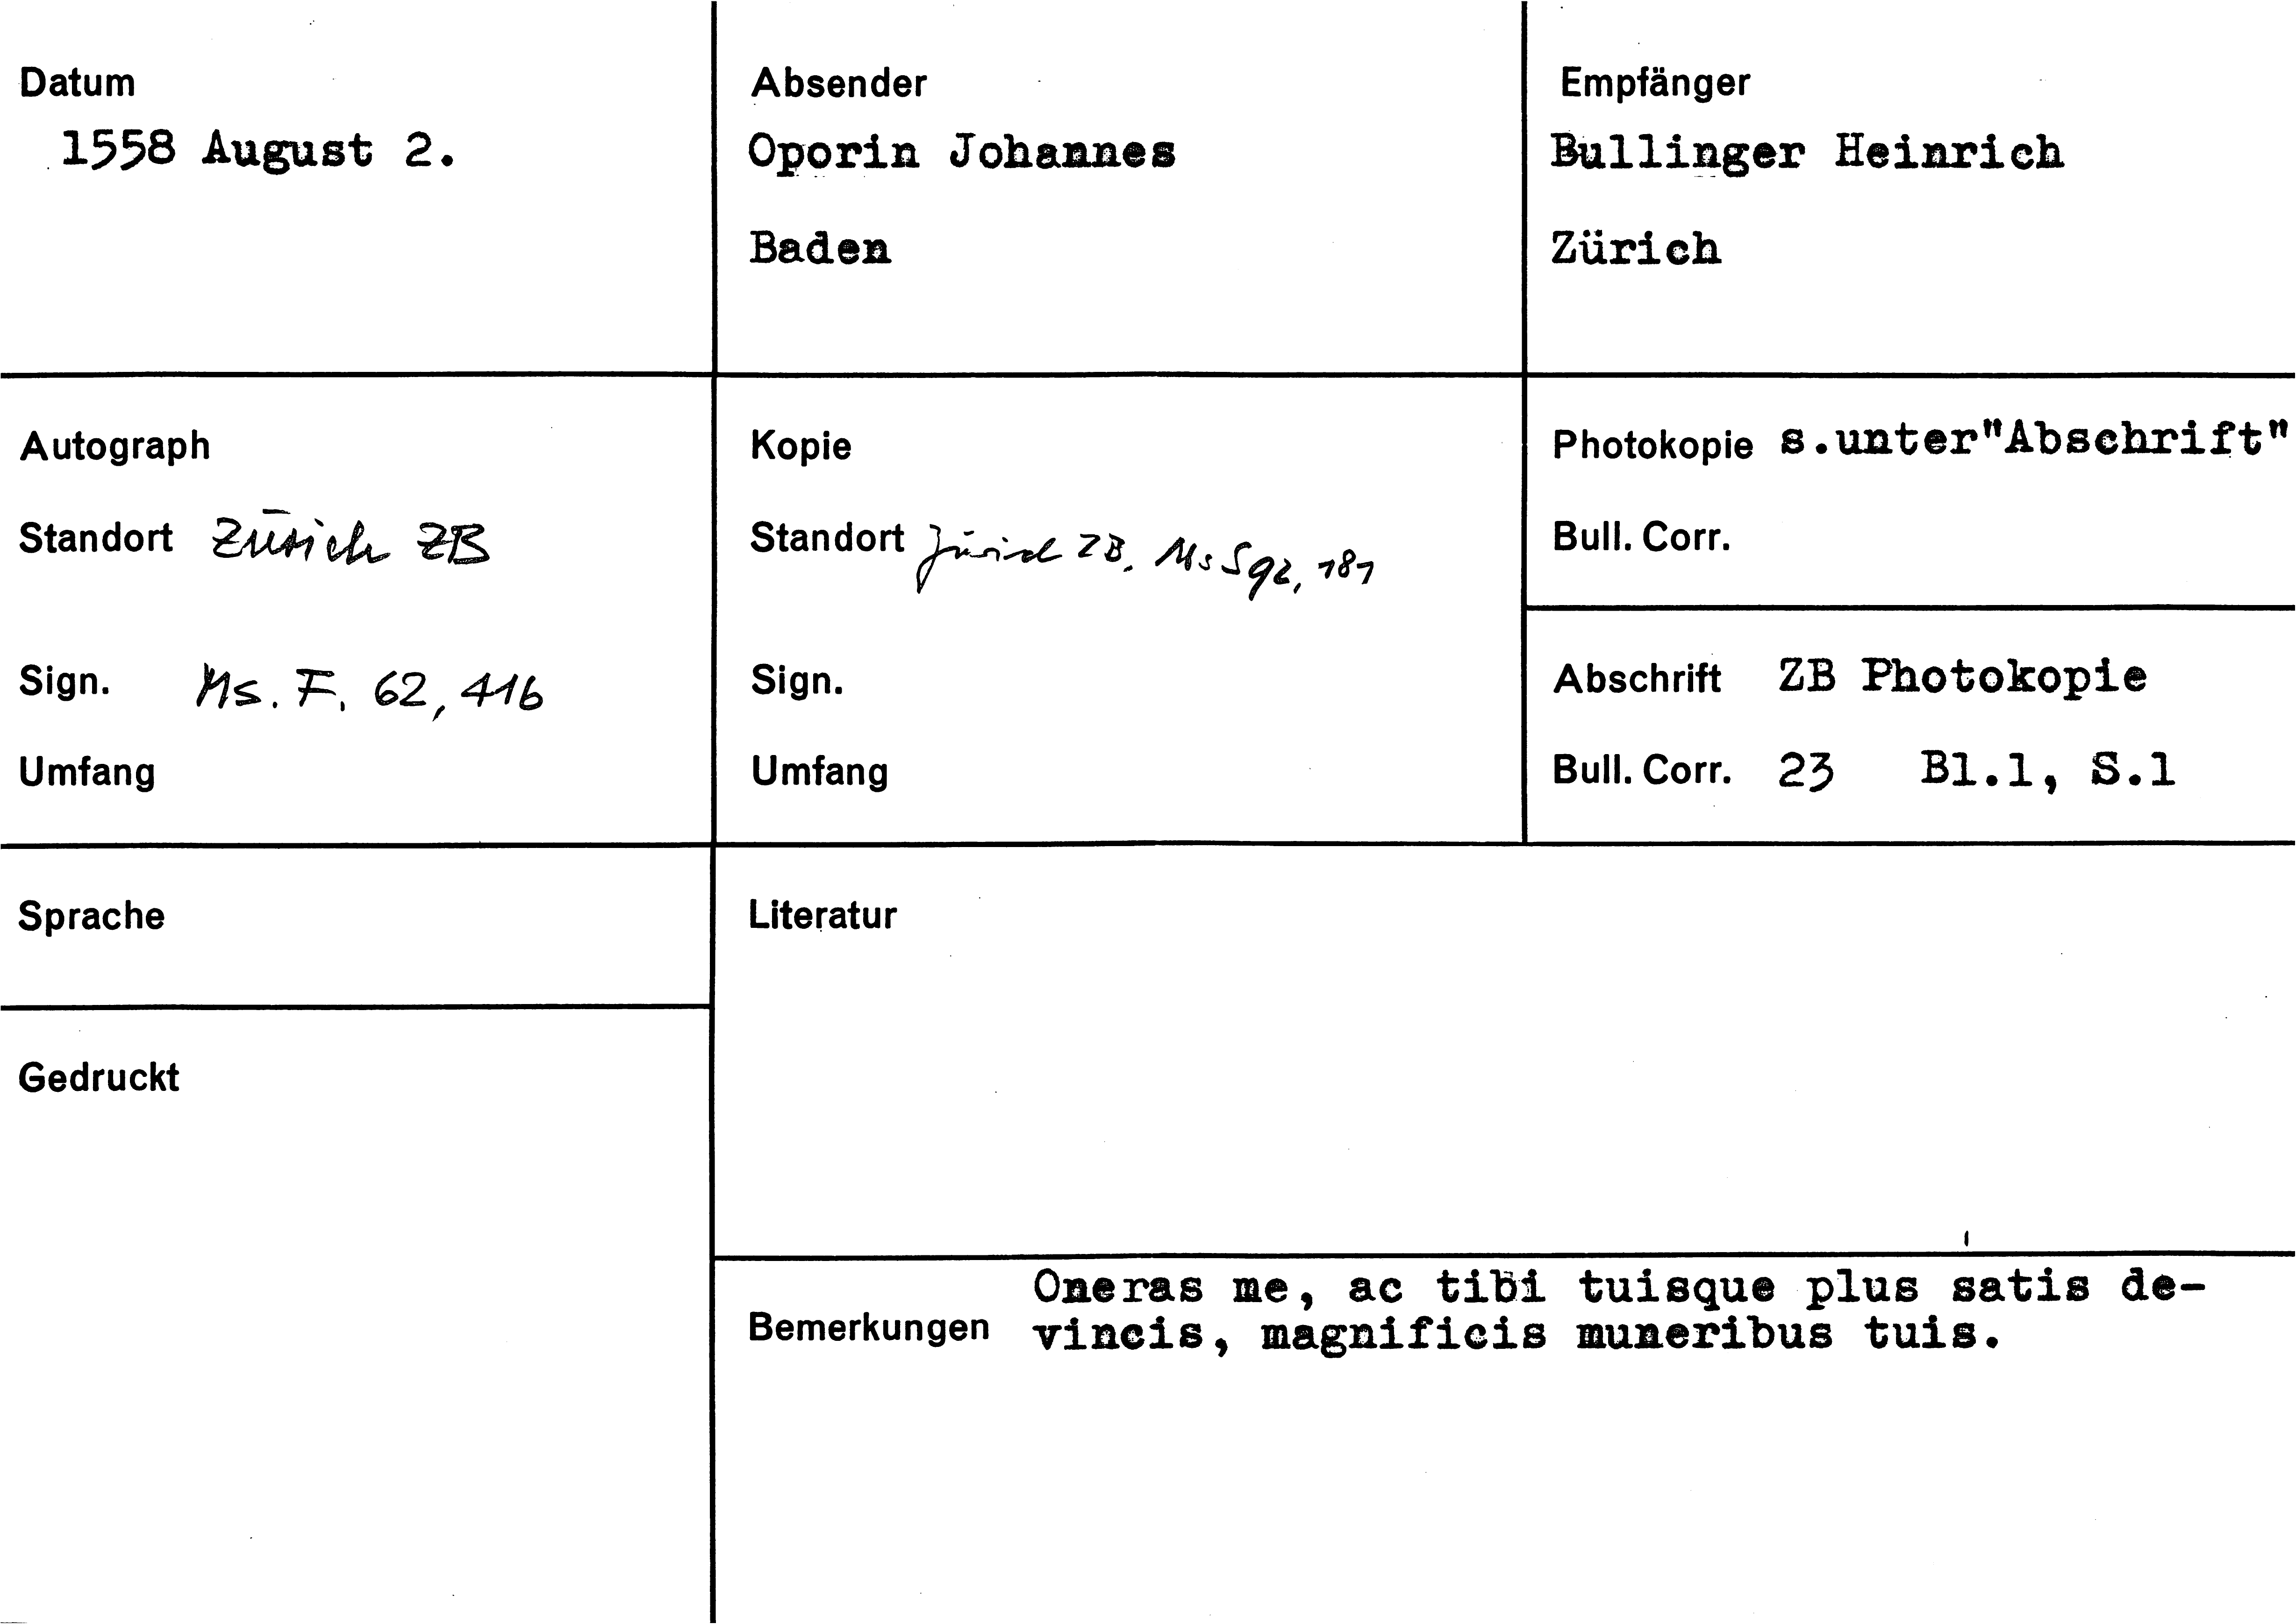 Datum
1558 August 2.
Absender
Oporin Johannes
Baden
Empfänger
Bullinger Heinrich
Zürich
Autograph
Standort Zürich ZB
Sign. Ms. F. 62, 416
Umfang
Kopie
Standort Zürich ZB. Ms S 92, 181
Sign.
Umfang
Photokopie s.unter"Abschrift"
Bull. Corr.
Abschrift ZB Photokopie
Bull. Corr. 23 Bl.1, S.1
Sprache
Gedruckt
Literatur
Bemerkungen
Oneras me, ac tibi tuisque plus satis de-
vincis, magnificis muneribus tuis.